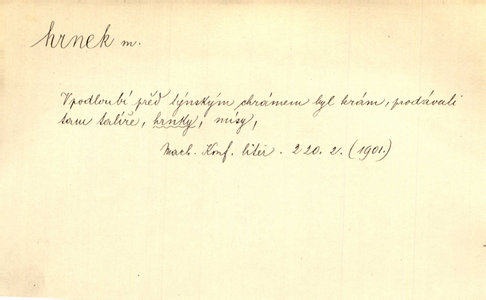 hrnek m.
V podloubí před týnským chrámem byl krám, prodávali
tam talíře, hrnky, mísy,
Mach. Konf. liter. 220. 2. (1901.)